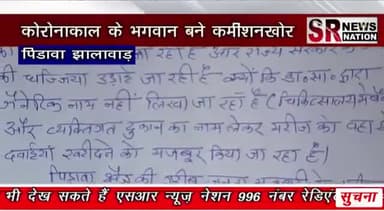 कोरोनाकाल के भगवान बने कमीशनखोर
SR NEWS
NATION
पिडावा झालावाड़
जा रहा है और राज्य सरकार
की धज्जिया उडाई जा रही है क्यों कि डा॰सा॰ द्वारा
जैनेरिक नाम नहीं लिखा जा रहा है (चिकित्सालय में
और व्यक्तिगत दुकान का नाम लेकर मरीज को वहा से
दवाईयां खरीदने को मजबूर किया जा रहा है)
पिडावा क्षेत्र की गरीब
भी देख सकते हैं एसआर न्यूज़ नेशन 996 नंबर रेडिएं
सूचना